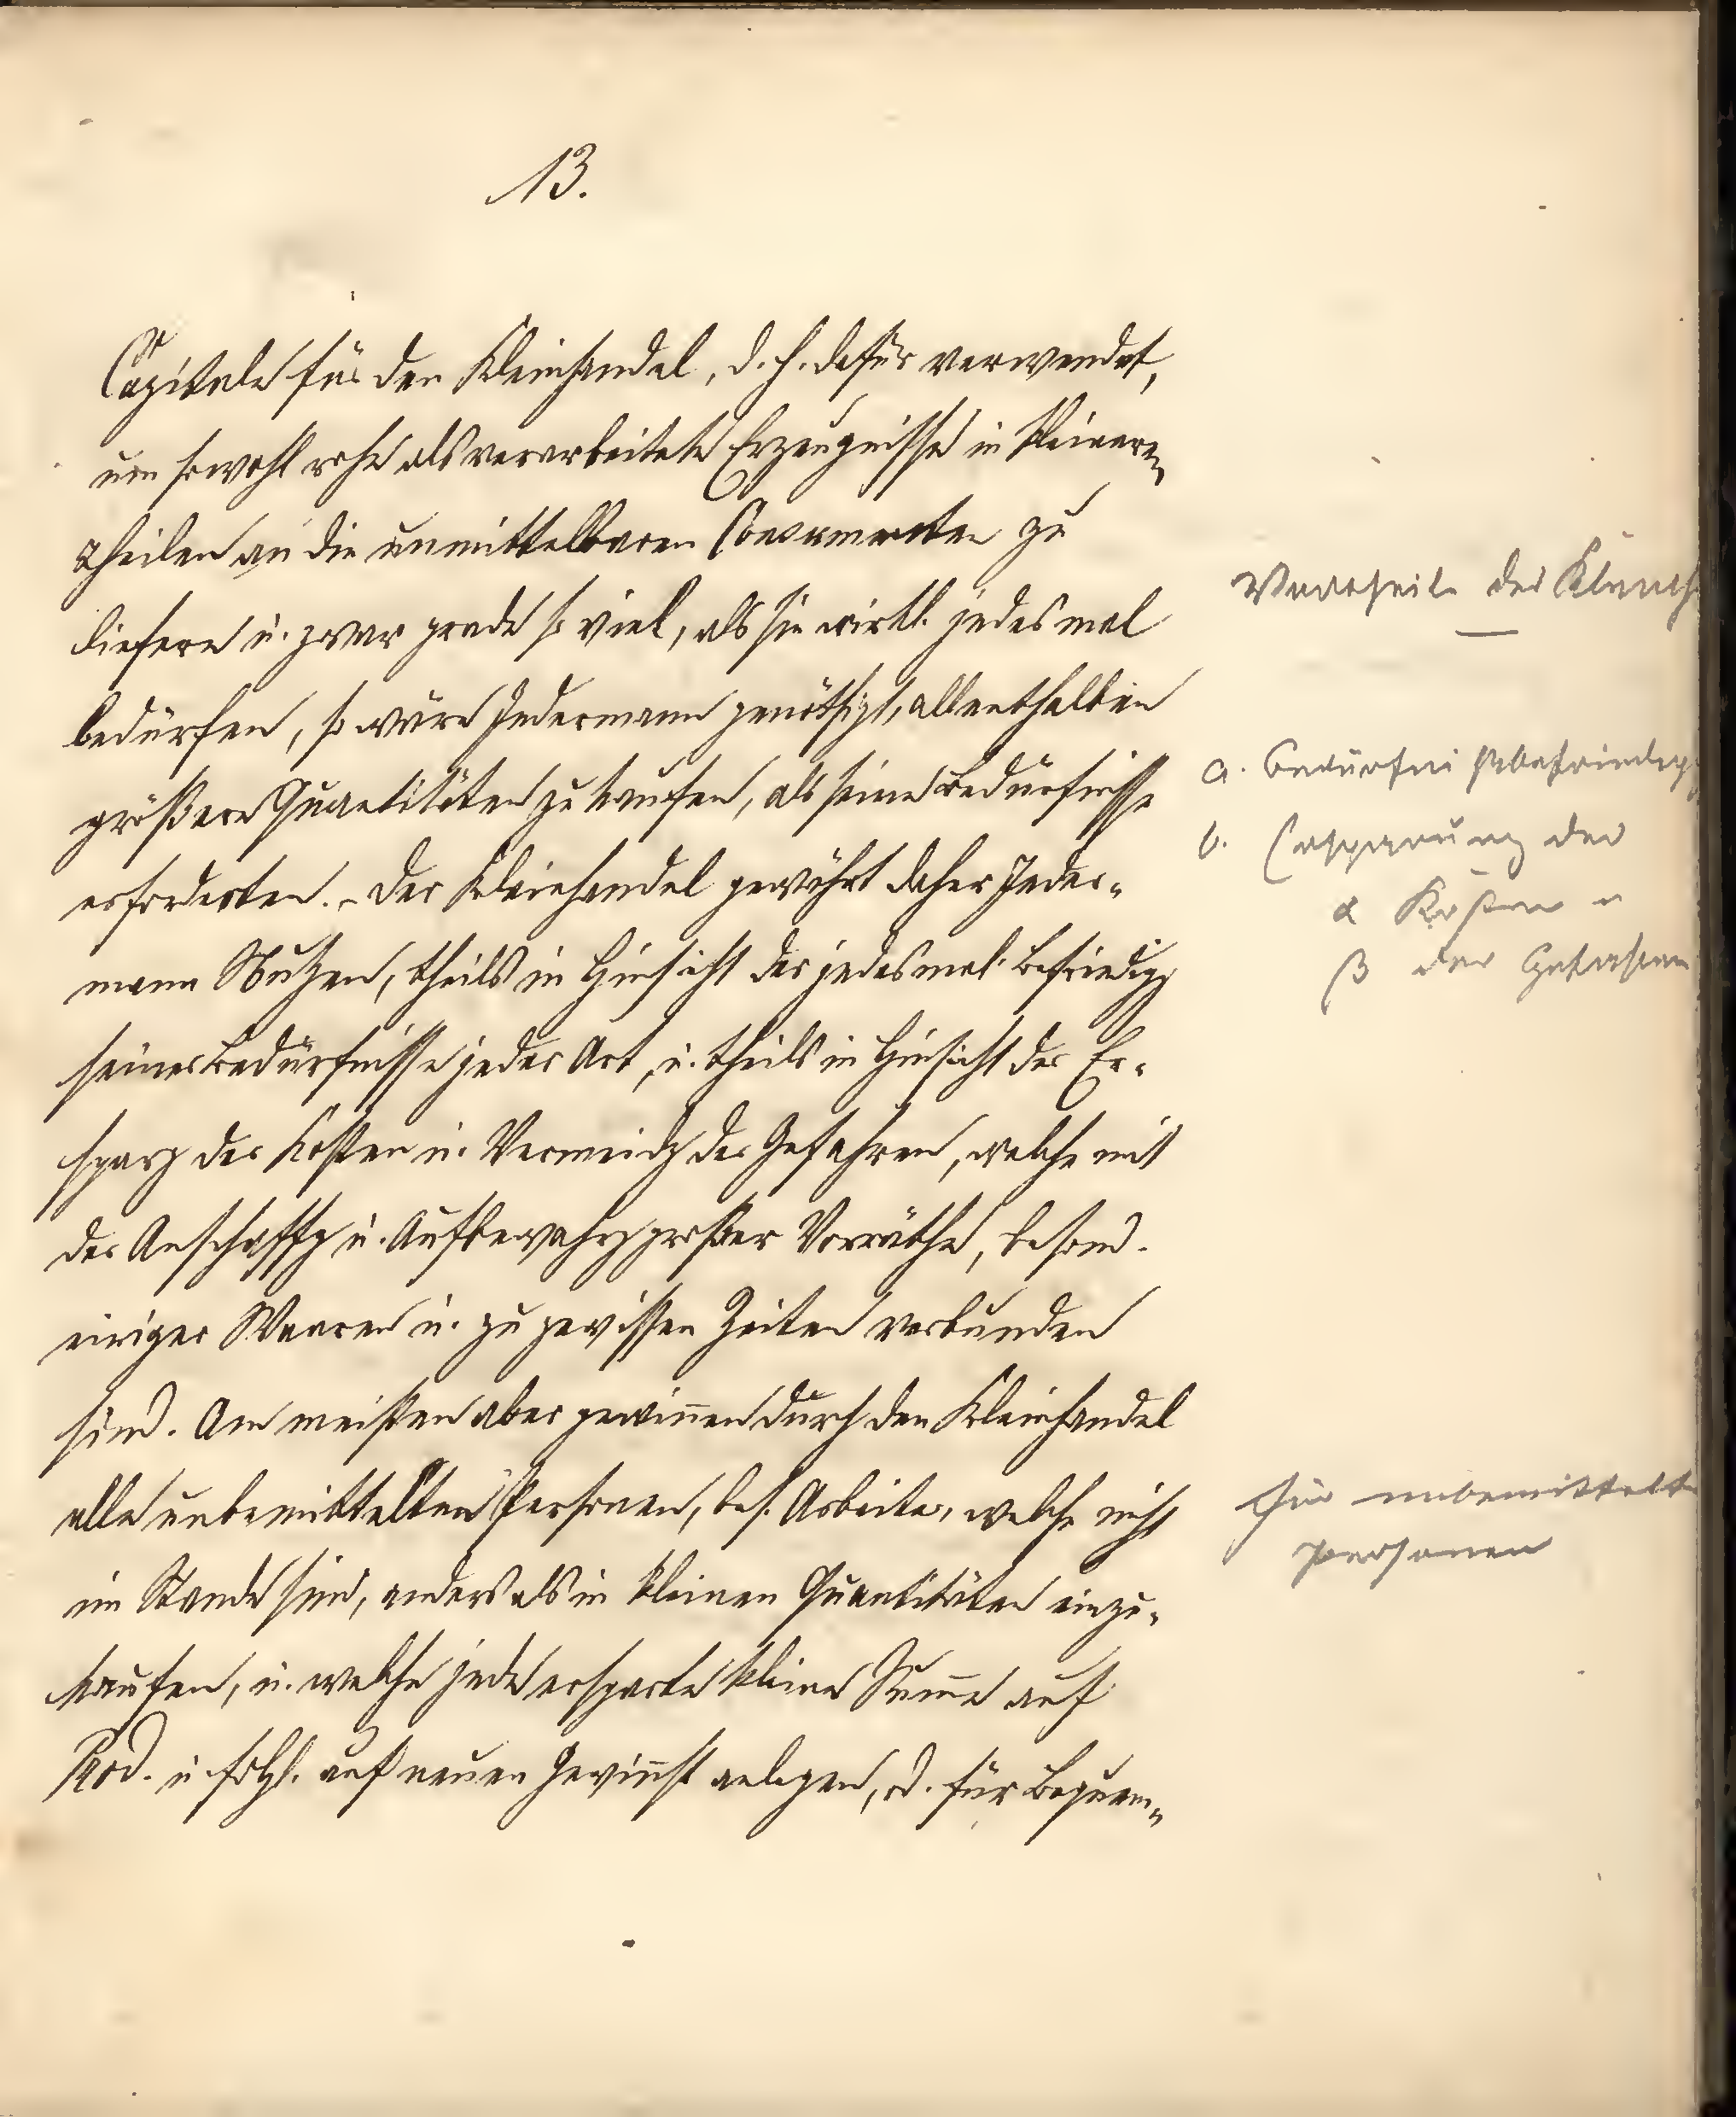 13.
Capitale für den Kleinhandel, d. h. dafür verwendet,
um sowohl rohe als verarbeitete Erzeugnisse in kleineren
Theilen an die unmittelbaren Consumenten zu
liefern u. zwar grade so viel, als sie wirkl. jedes mal
bedürfen, so wäre Jedermann genöthigt, allenthalben
größere Quantitäten zu kaufen, als seine Bedürfnisse
erforderten. - Der Kleinhandel gewährt daher Jeder-
mann Nutzen, theils in Hinsicht der jedesmal. Befriedigg
seiner Bedürfnisse jeder Art, u. theils in Hinsicht der Er-
sparg der Kosten u. Vermeidg der Gefahren, welche mit
der Anschaffg u. Aufbewahrg großer Vorräthe, besond.
einiger Waaren u. zu gewissen Zeiten verbunden
sind. Am meisten aber gewinnen durch den Kleinhandel
alle unbemittelten Personen, bes. Arbeiter, welche nicht
im Stande sind, anders als in kleinen Quantitäten einzu-
kaufen, u. welche jede ersparte kleine Summe auf
Prod. u. folgl. auf neuen Gewinnst anlegen, od. für Bequem-
Vortheile des Kleinh
a. Bedürfnißbefriedigg
b. Ersparung der
α Kosten u
β der Gefahren
für unbemittelte
Personen